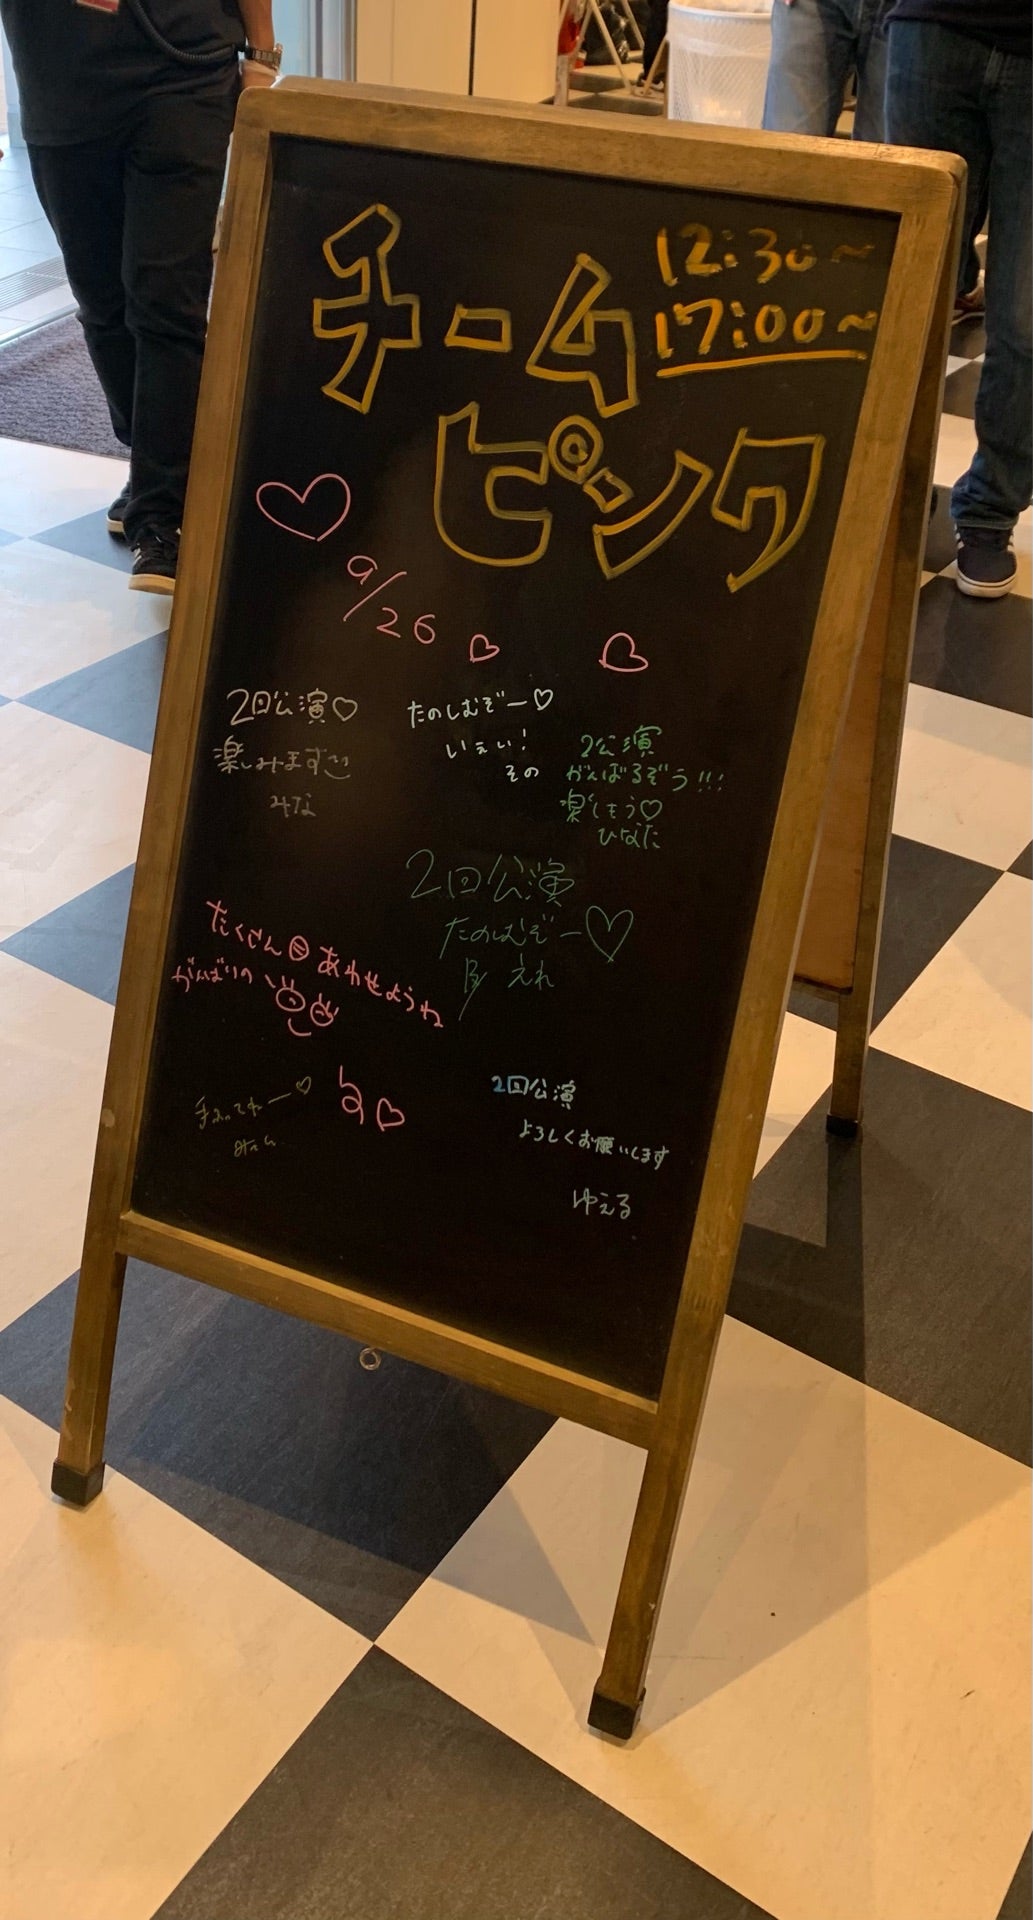 チーム
ピンク
12:30～
17:00～
9/26
2回公演♡
楽しみます
みな
たのしむぞー♡
いぇい!
その
2公演
がんばるぞう!!!
楽しもう♡
ひなた
2回公演
たのしむぞー♡
えれ
たくさん目あわせようね
がんばりの
る♡
手ふってねー♡
2回公演
よろしくお願いします
ゆえる